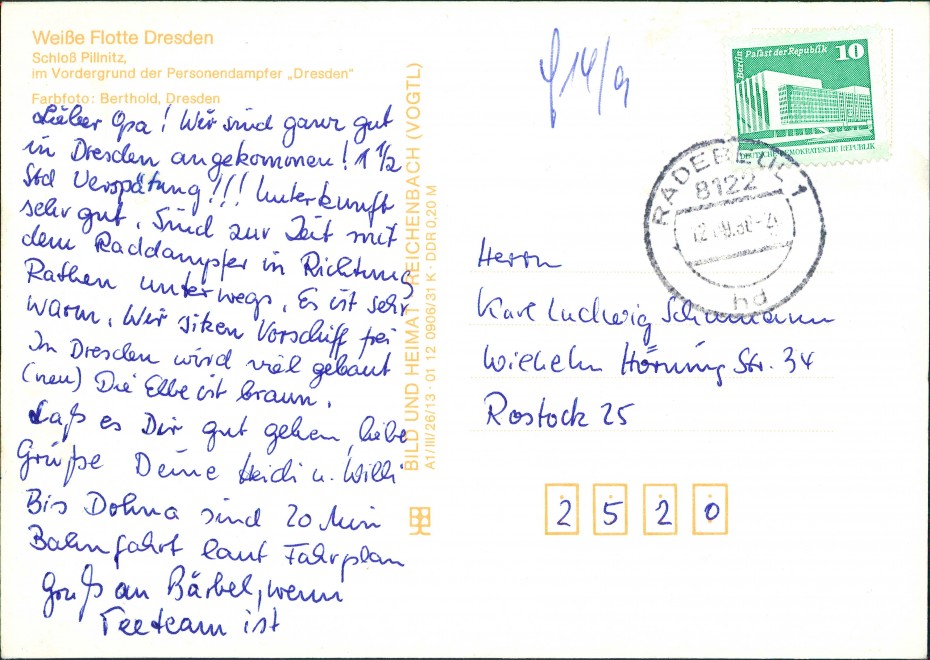 Weiße Flotte Dresden
Schloß Pillnitz,
im Vordergrund der Personendampfer „Dresden"
Farbfoto: Berthold, Dresden
Lieber Opa! Wir sind ganz gut
in Dresden angekommen! 1 1/2
Std Verspätung!!! Unterkunft
sehr gut. Sind zur Zeit mit
dem Raddampfer in Richtung
Rathen unterwegs. Es ist sehr
warm. Wir sitzen Vorschiff frei
In Dresden wird viel gebaut
(neu) Die Elbe ist braun.
Laß es Dir gut gehen, liebe
Grüße Deine Heidi u. Willi
Bis Dohna sind 20 Min
Bahnfahrt laut Fahrplan
Gruß an Bärbel, wenn
Teeteam ist
BILD UND HEIMAT REICHENBACH (VOGTL)
A1/III/26/13 · 01 12 0906/31 K · DDR 0,20 M
14/9
Berlin Palast der Republik 10
DEUTSCHE DEMOKRATISCHE REPUBLIK
RADEBEUL 1
8122
hd
Herrn
Karl Ludwig Schumann
Wilhelm Hörning Str. 34
Rostock 25
2 5 2 0